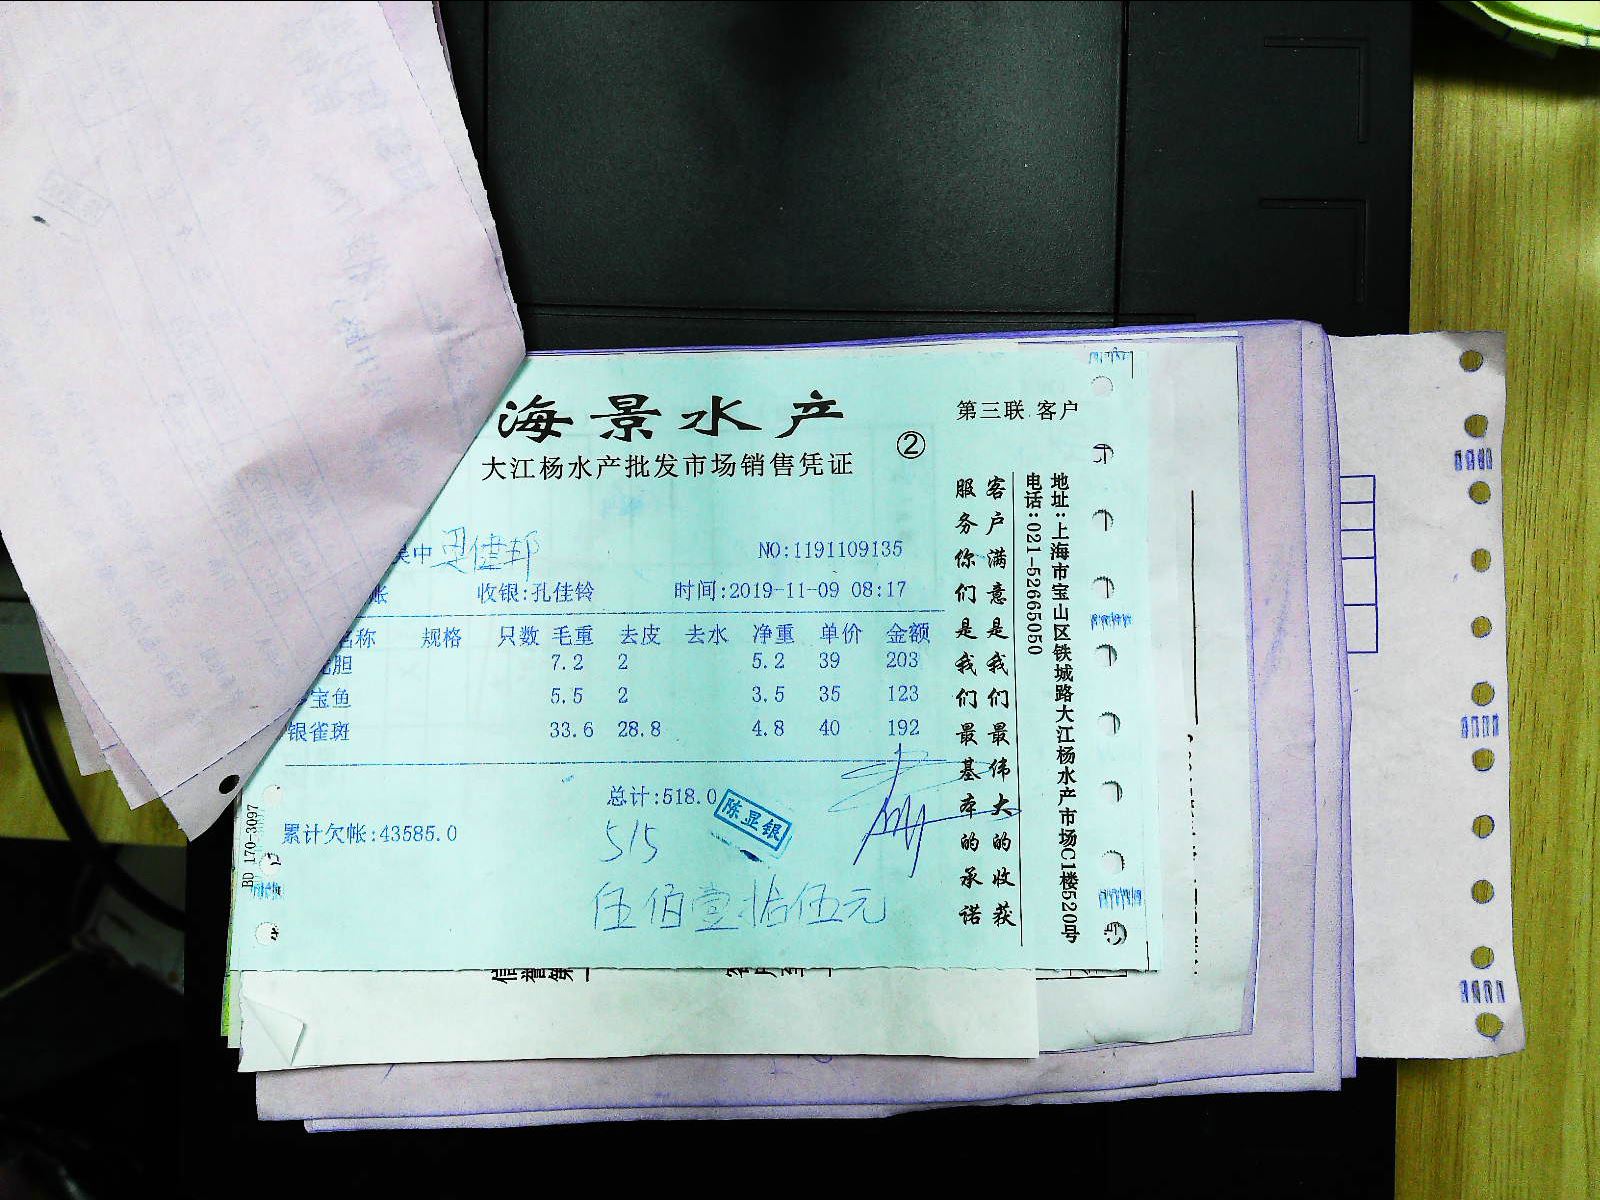 海景水产
第三联 客户
②
大江杨水产批发市场销售凭证
吴中 梁健邦
NO:1191109135
账 收银:孔佳铃 时间:2019-11-09 08:17
名称 规格 只数 毛重 去皮 去水 净重 单价 金额
胆 7.2 2 5.2 39 203
宝鱼 5.5 2 3.5 35 123
银雀斑 33.6 28.8 4.8 40 192
总计:518.0
陈显银
累计欠帐:43585.0
515
伍佰壹拾伍元
客户满意是我们最伟大的收获
服务你们是我们最基本的承诺
地址:上海市宝山区铁城路大江杨水产市场C1楼520号
电话:021-52665050
BD 170-3097